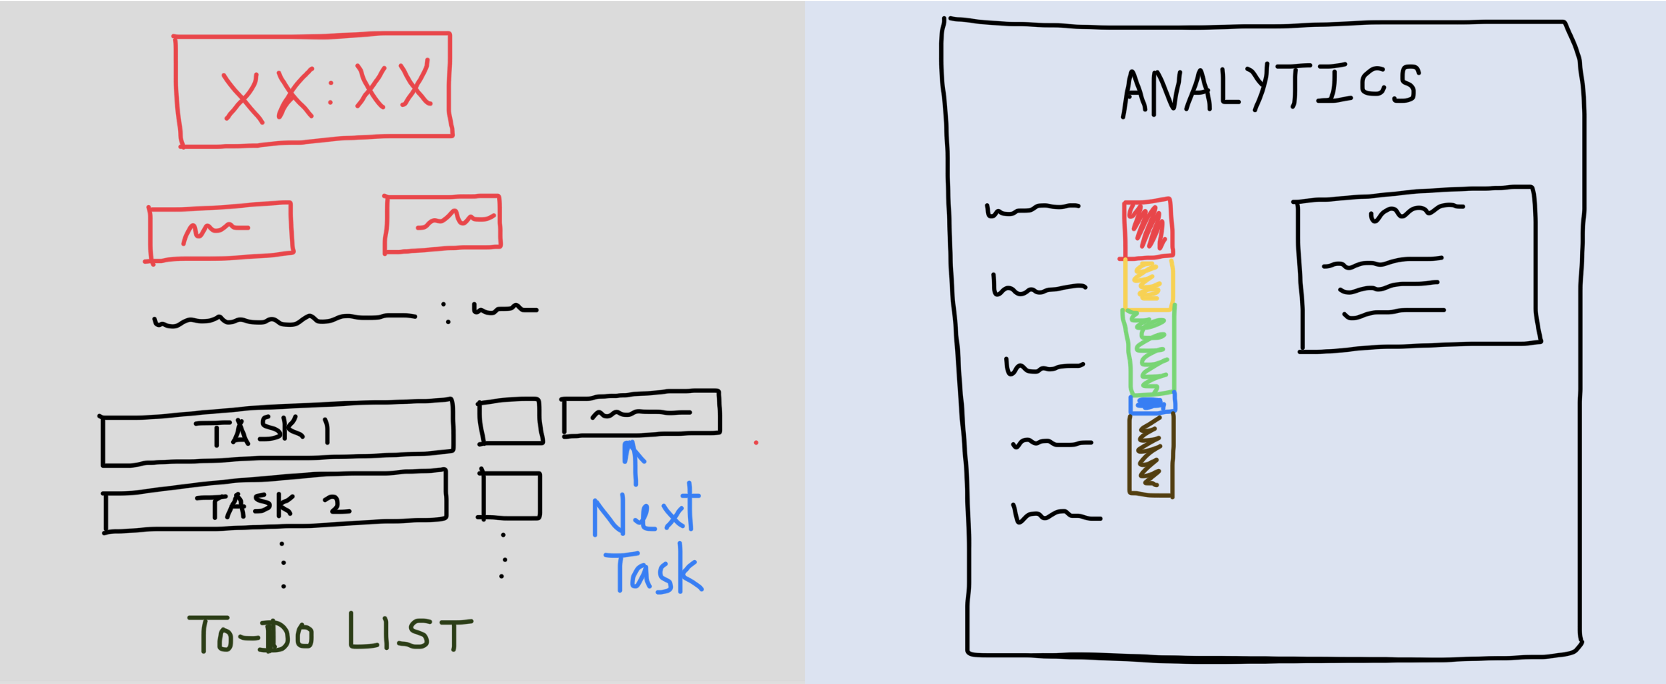 XX:XX
:
TASK 1
TASK 2
Next
Task
TO-DO LIST
ANALYTICS